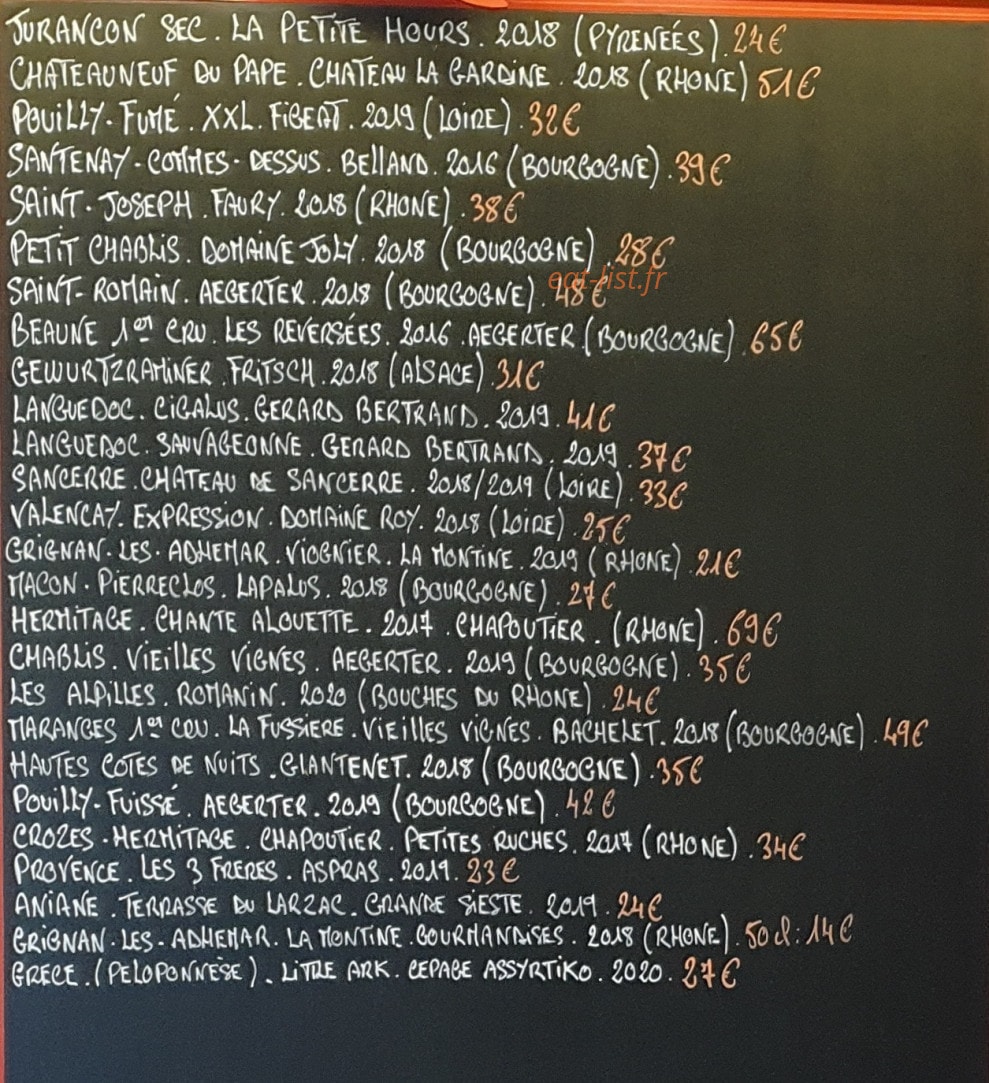 JURANCON SEC. LA PETITE HOURS. 2018 (PYRENEÉS). 24€
CHATEAUNEUF DU PAPE. CHATEAU LA GARDINE. 2018 (RHONE) 51€
POUILLY-FUMÉ. XXL. FIBEAT. 2019 (LOIRE). 32€
SANTENAY-COMMES-DESSUS. BELLAND. 2016 (BOURGOGNE). 39€
SAINT-JOSEPH. FAURY. 2018 (RHONE). 38€
PETIT CHABLIS. DOMAINE JOLY. 2018 (BOURGOGNE). 28€
eat-list.fr
SAINT-ROMAIN. AEGERTER. 2018 (BOURGOGNE). 48€
BEAUNE 1er CRU. LES REVERSÉES. 2016. AEGERTER (BOURGOGNE). 65€
GEWURTZRAMINER. FRITSCH. 2018 (ALSACE). 31€
LANGUEDOC. CIGALUS. GERARD BERTRAND. 2019. 41€
LANGUEDOC. SAUVAGEONNE. GERARD BERTRAND. 2019. 37€
SANCERRE. CHATEAU DE SANCERRE. 2018/2019 (LOIRE). 33€
VALENCAY. EXPRESSION. DOMAINE ROY. 2018 (LOIRE). 25€
GRIGNAN-LES-ADHEMAR. VIOGNIER. LA MONTINE. 2019 (RHONE). 21€
MACON-PIERRECLOS. LAPALUS. 2018 (BOURGOGNE). 27€
HERMITAGE. CHANTE ALOUETTE. 2017. CHAPOUTIER. (RHONE). 69€
CHABLIS. VIEILLES VIGNES. AEGERTER. 2019 (BOURGOGNE). 35€
LES ALPILLES. ROMANIN. 2020 (BOUCHES DU RHONE). 24€
MARANGES 1er COU. LA FUSSIERE. VIEILLES VIGNES. BACHELET. 2018 (BOURGOGNE). 49€
HAUTES COTES DE NUITS. GLANTENET. 2018 (BOURGOGNE). 35€
POUILLY-FUISSÉ. AEGERTER. 2019 (BOURGOGNE). 42€
CROZES-HERMITAGE. CHAPOUTIER. PETITES RUCHES. 2017 (RHONE). 34€
PROVENCE. LES 3 FRERES. ASPRAS. 2019. 23€
ANIANE. TERRASSE DU LARZAC. GRANDE SIESTE. 2019. 24€
GRIGNAN-LES-ADHEMAR. LA MONTINE. GOURMANDISES. 2018 (RHONE). 50cl: 14€
GRECE. (PELOPONNÈSE). LITTLE ARK. CEPAGE ASSYRTIKO. 2020. 27€